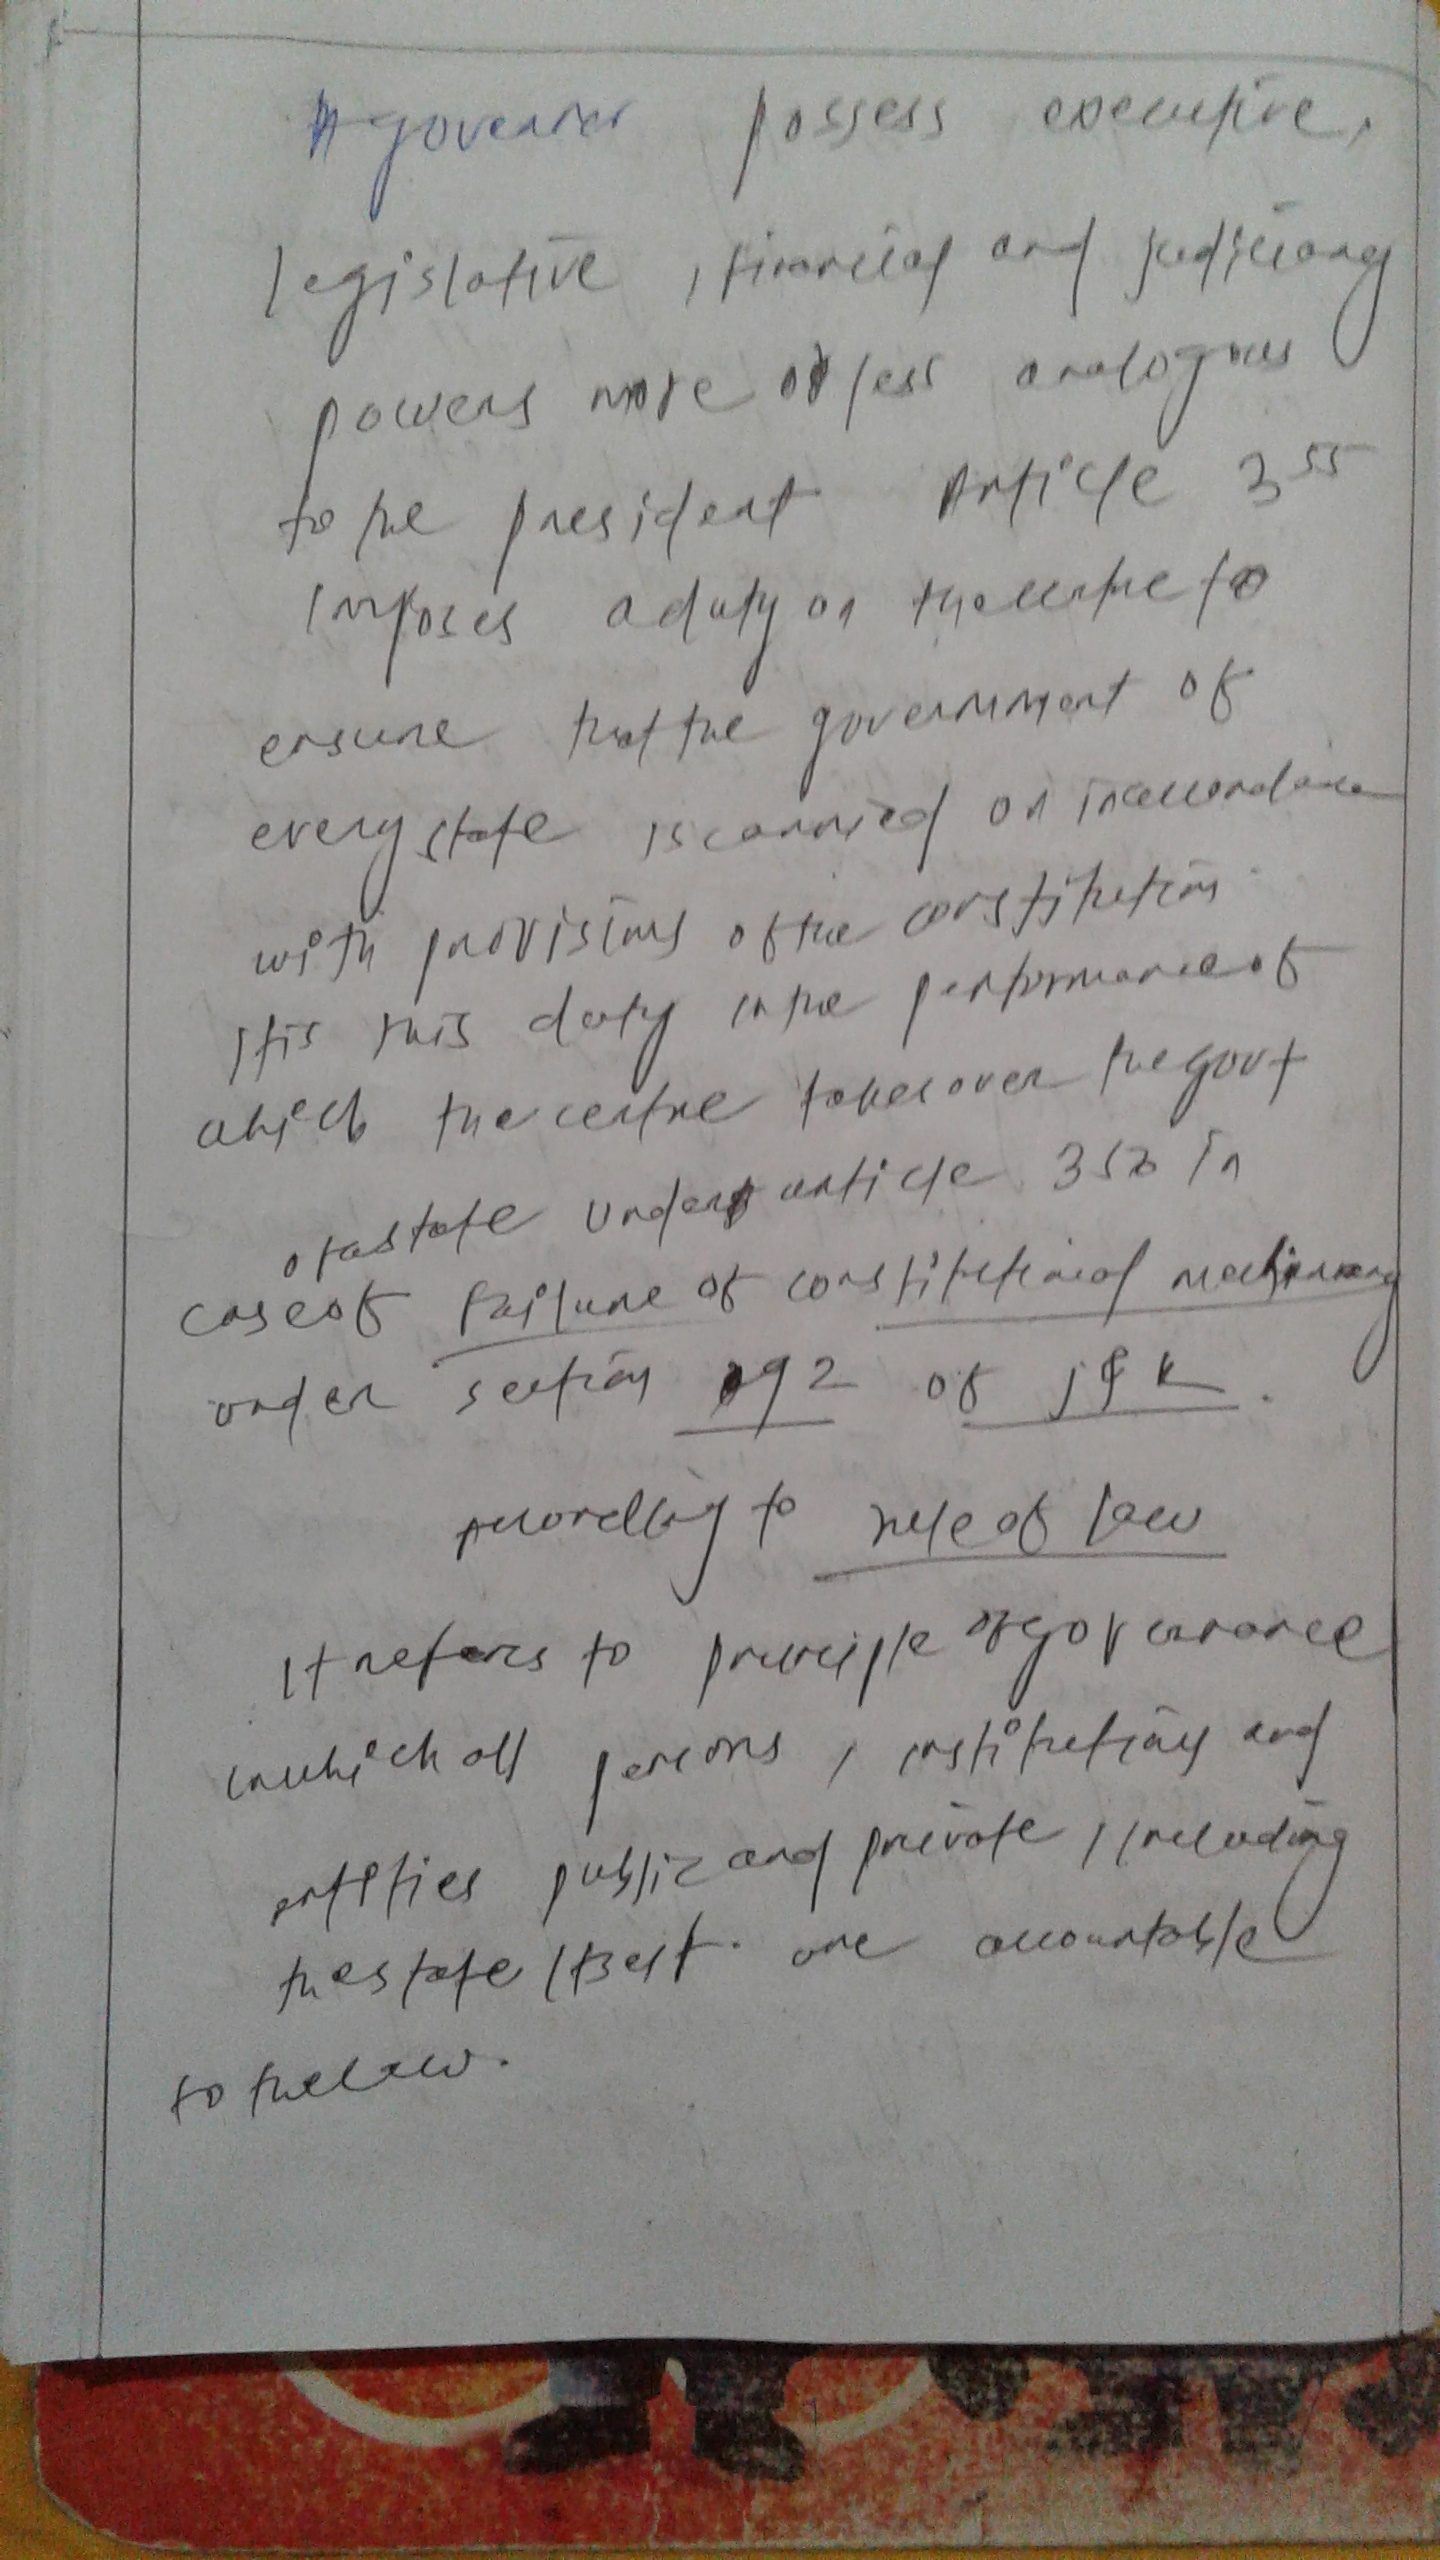 A governor possess executive,
legislative, financial and judiciary
powers more or less analogous
to the president Article 355
imposes a duty on the centre to
ensure that the government of
every state is carried on in accordance
with provisions of the constitution
It is this duty in the performance of
which the centre takes over the govt
of a state under article 35 in
case of failure of constitutional machinery
under section 92 of J & K.
According to rule of law
It refers to principle of governance
in which all persons, institutions and
entities public and private, including
the state itself. are accountable
to the law.